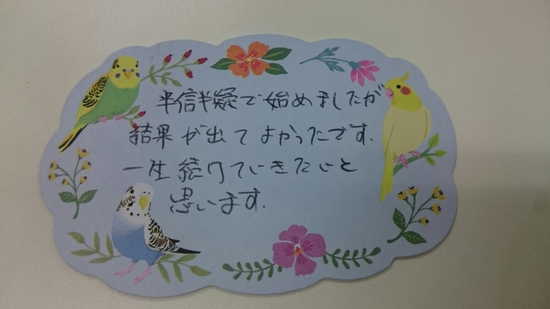 半信半疑で始めましたが
結果が出てよかったです.
一生続けていきたいと
思います.